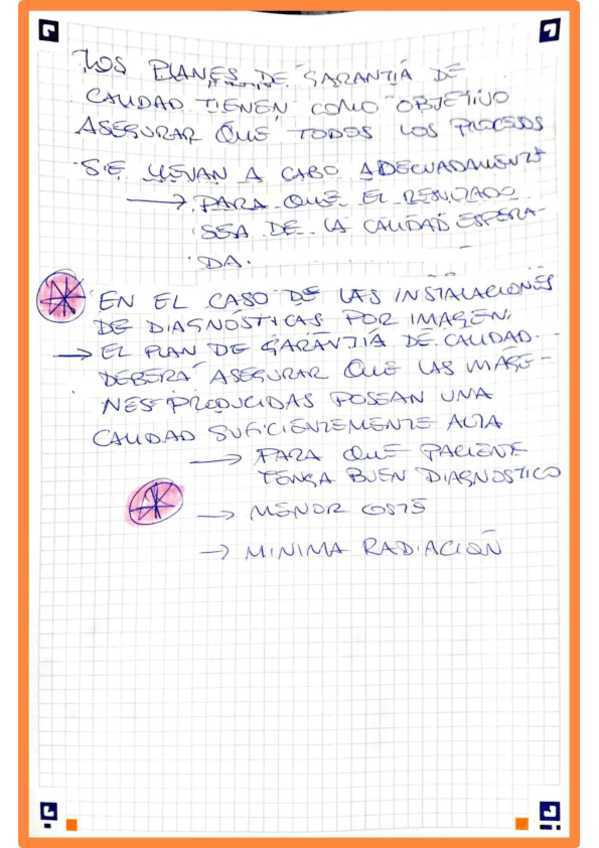 LOS PLANES DE GARANTIA DE
CALIDAD TIENEN COMO OBJETIVO
ASEGURAR QUE TODOS LOS PROCESOS
SE LLEVAN A CABO ADECUADAMENTE
→ PARA QUE EL RESULTADO
SEA DE LA CALIDAD ESPERA-
DA.
EN EL CASO DE LAS INSTALACIONES
DE DIAGNÓSTICAS POR IMAGEN,
→ EL PLAN DE GARANTIA DE CALIDAD
DEBERÁ ASEGURAR QUE LAS IMÁGE-
NES PRODUCIDAS POSEAN UNA
CALIDAD SUFICIENTEMENTE ALTA
→ PARA QUE PACIENTE
TENGA BUEN DIAGNOSTICO
→ MENOR COSTE
→ MINIMA RADIACIÓN